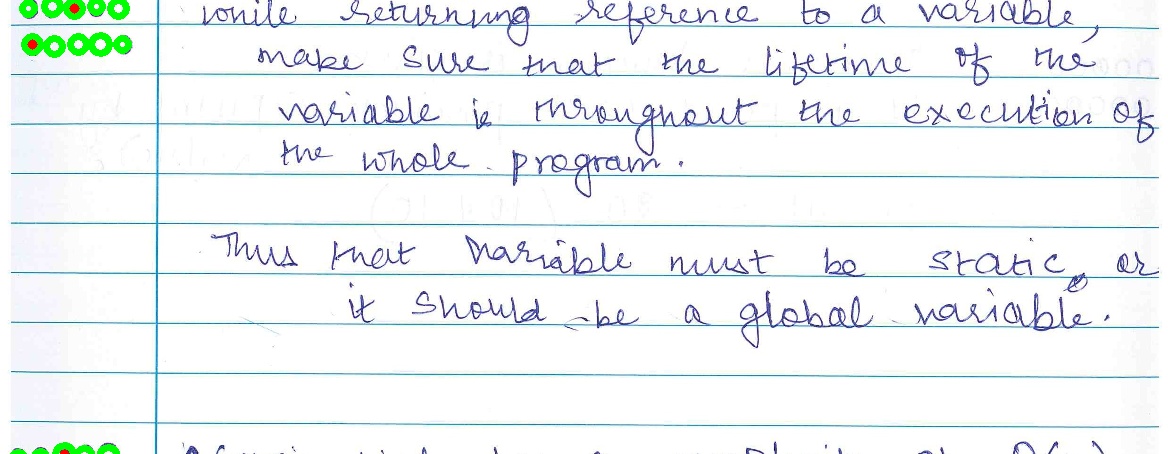 while returning reference to a variable,
make sure that the lifetime of the
variable is throughout the execution of
the whole program.
Thus that variable must be static, or
it should be a global variable.